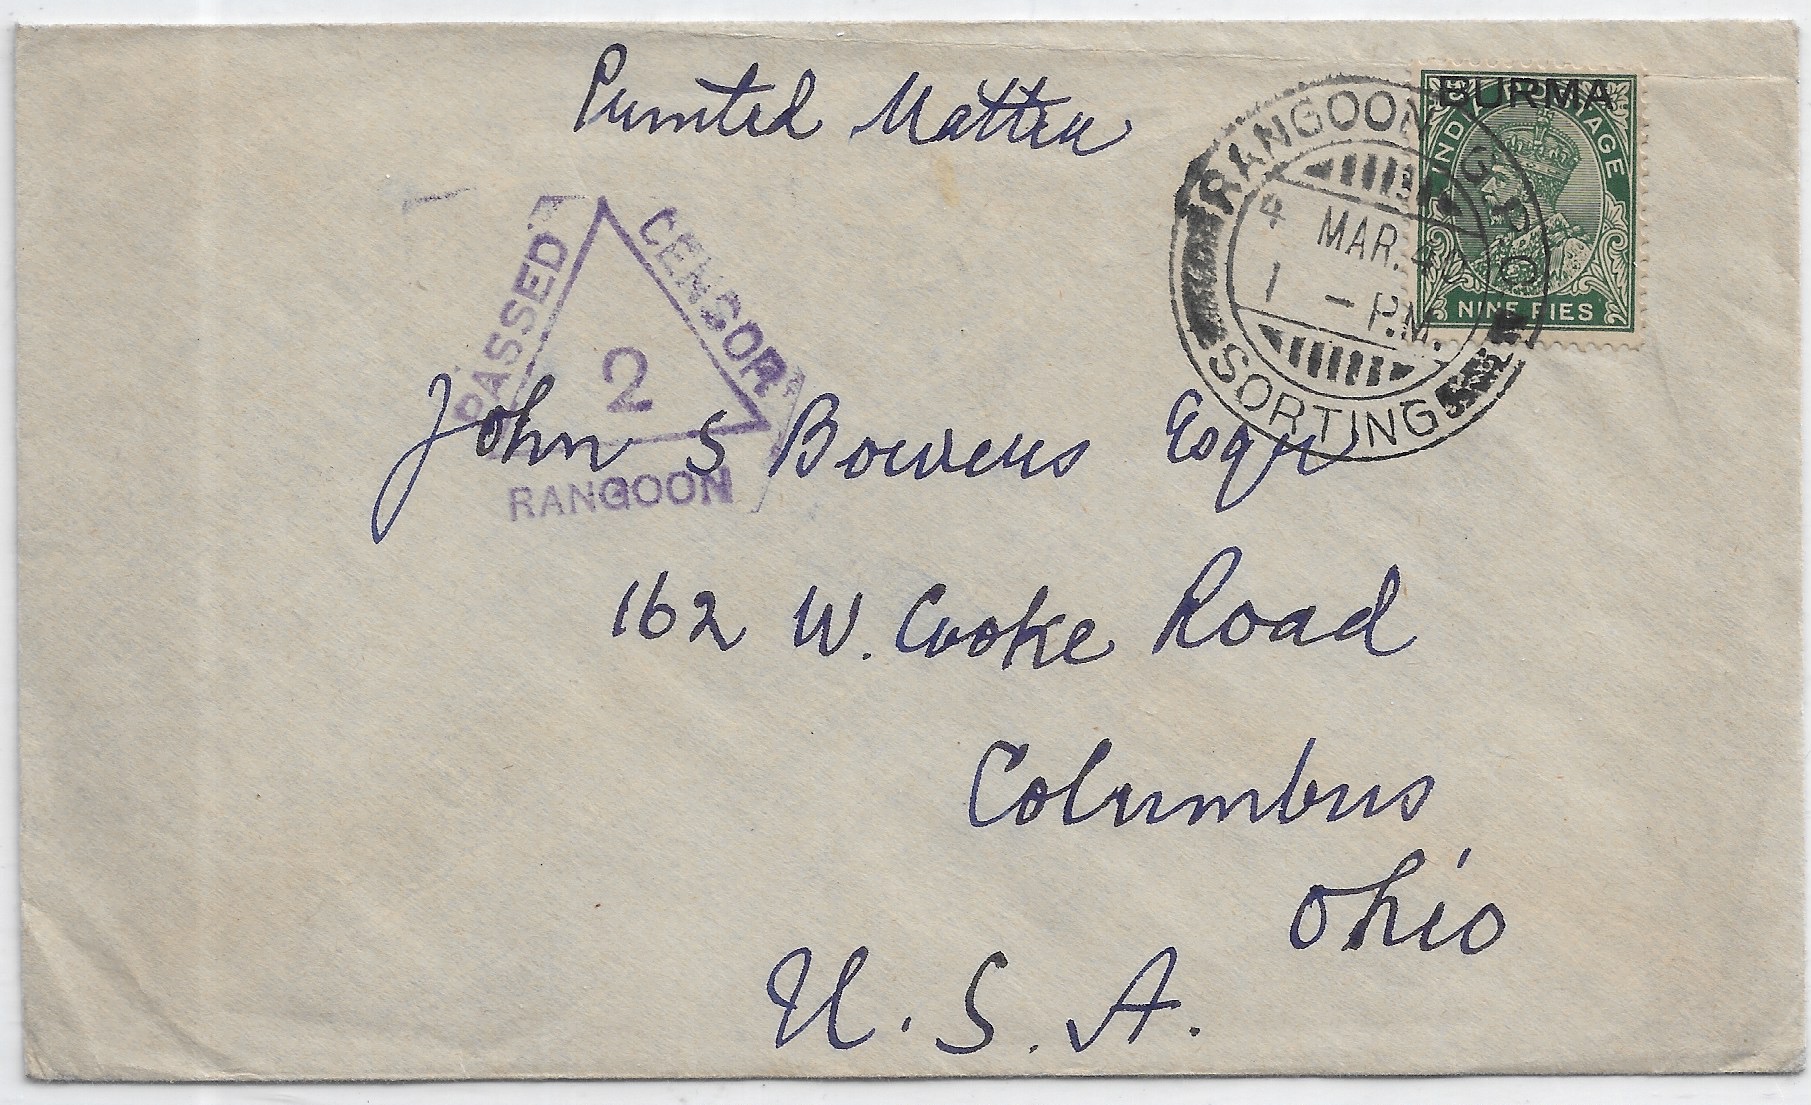 Printed Matter
BURMA
INDIA POSTAGE
NINE PIES
RANGOON G.P.O.
4 MAR. 40
1 - P.M.
SORTING
PASSED
CENSOR
2
RANGOON
John S Bowers Esqr
162 W. Cooke Road
Columbus
Ohio
U. S. A.